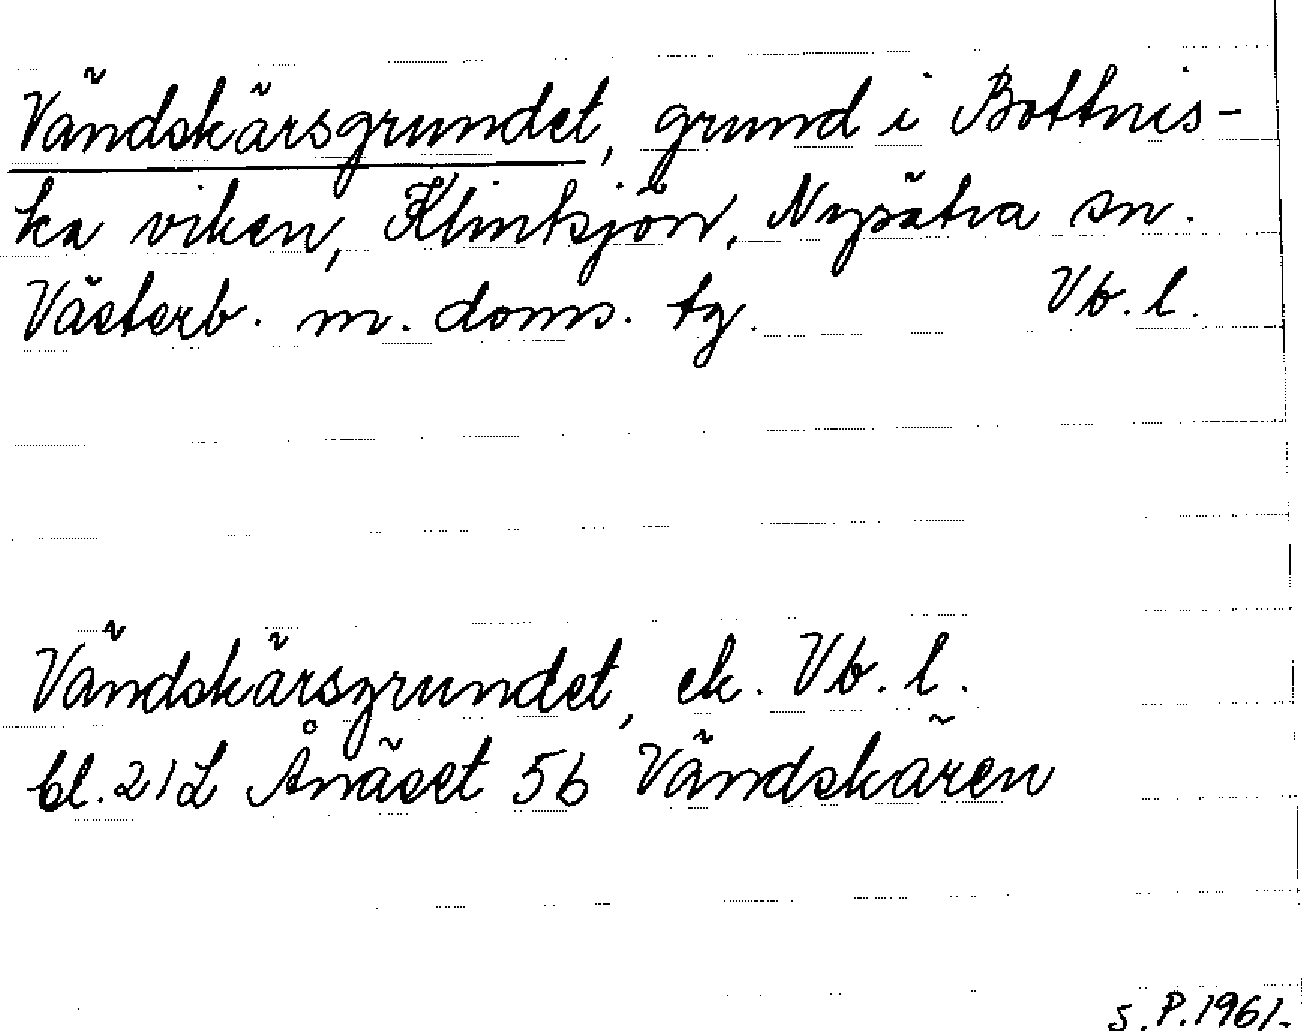 Vändskärsgrundet, grund i Bottnis-
ka viken, Klintsjön, Nysätra sn.
Västerb. m. doms. tg. Vb. l.
Vändskärsgrundet, ek. Vb. l.
bl. 21L Ånäset 5b Vändskären
S.P. 1961.